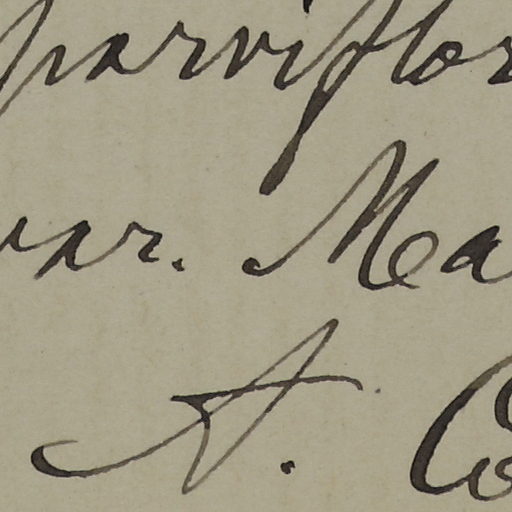 parviflor
var. Ma
A. Co